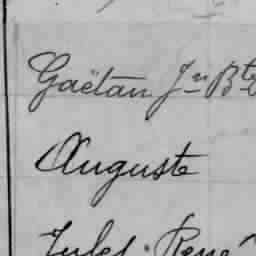 Gaëtan Jn Bte
Auguste
Jules. René